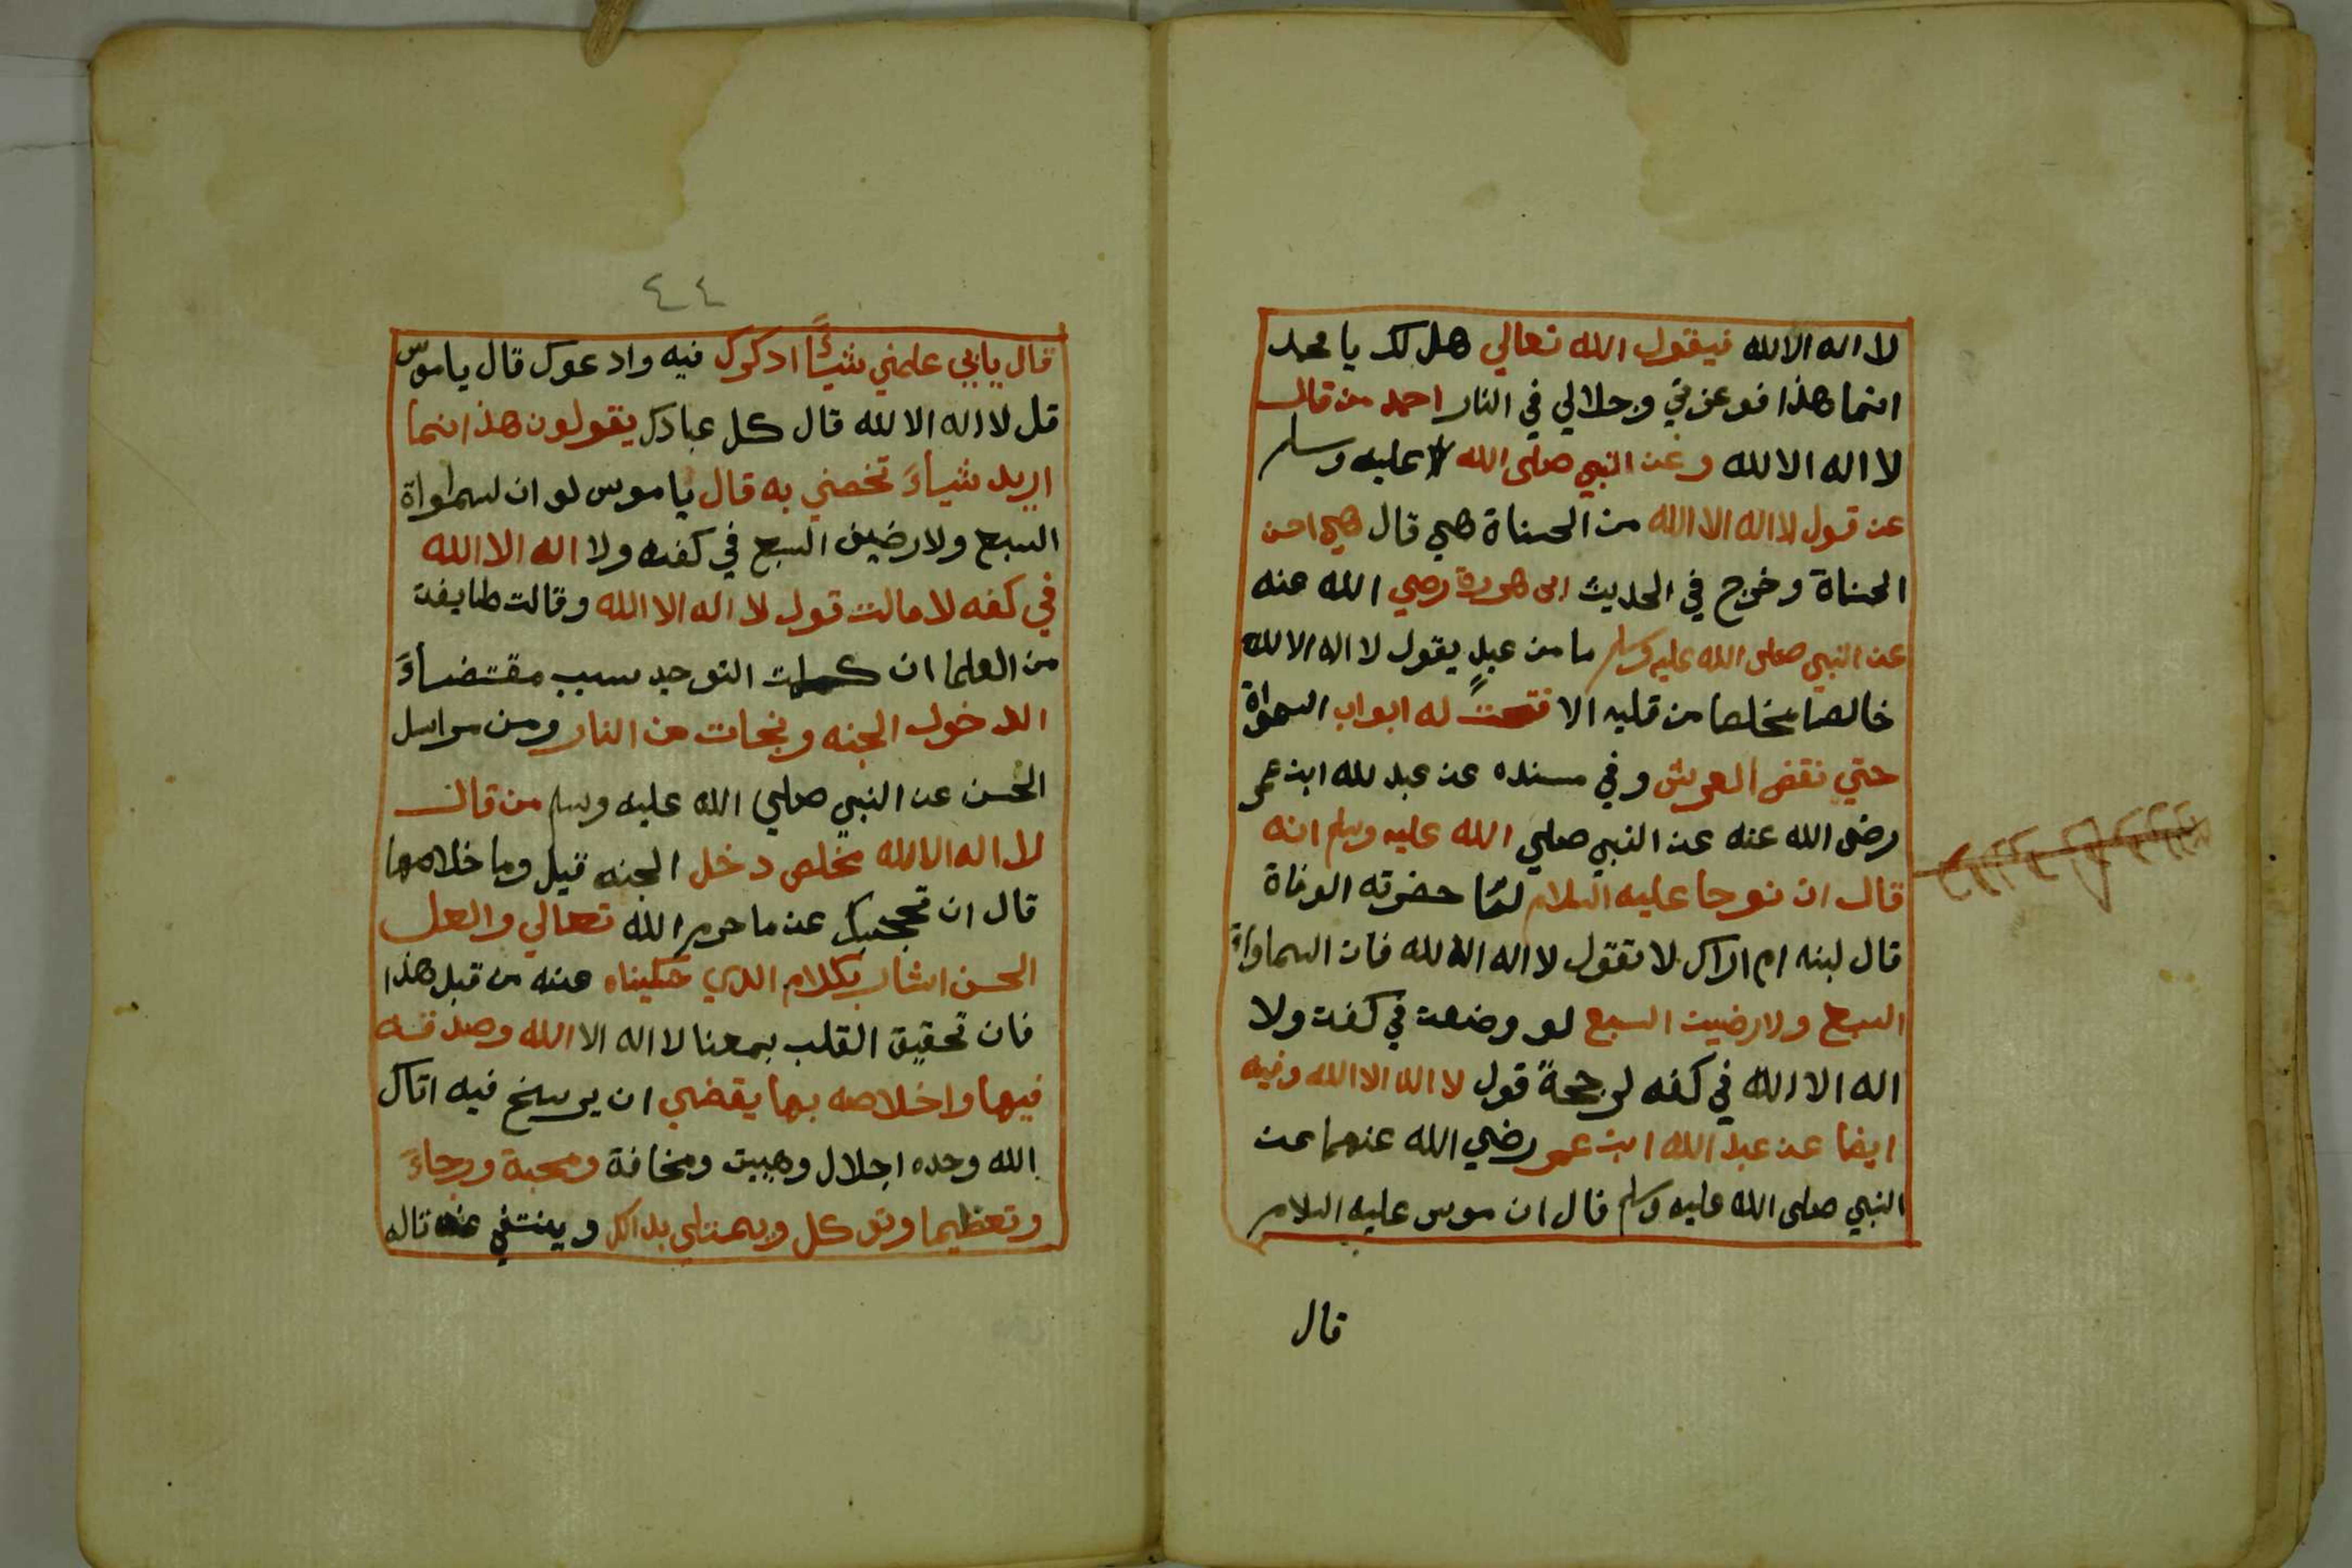 لا اله الا لله فيقول الله تعالي هل لك يا محمد
انما هذا فوعزتي وجلالي في النار احمد من قال
لا اله الا لله وعن النبي صلى الله عليه وسلم
عن قول لا اله الا الله من الحسناة هي قال هي احسن
الحسناة وخرج في الحديث ابى هريرة رضي الله عنه
عن النبي صلى الله عليه وسلم ما من عبد يقول لا اله الا لله
خالصا مخلصا من قلبه الا فتحت له ابواب السمواة
حتي نقض العرش وفي مسنده عن عبد لله ابن عمر
رضى الله عنه عن النبي صلي الله عليه وسلم انه
قال ان نوحا عليه السلام لمّا حضرته الوفاة
قال لبنه لا تقول لا اله الا لله فان السماواة
السبع ولارضين السبع لو وضعت في كفت ولا
اله الا الله في كفه لرجحة قول لا اله الا الله وفيه
ايضا عن عبد الله ابن عمر رضي الله عنهما عن
النبي صلى الله عليه وسلم قال ان موس عليه السلام
قال
٤٤
قال يا ربي علمني شيئاً ادكرك فيه وادعوك قال يا موس
قل لا اله الا لله قال كل عبادك يقولون هذا انما
اريد شياءً تخصني به قال يا موس لو ان لسمواة
السبع ولارضين السبع في كفه ولا اله الا الله
في كفه لا مالت قول لا اله الا الله وقالت طايفت
من العلما ان كلمت التوحيد سبب مقتضاءً
الدخول الجنه ونجات من النار ومن مراسل
الحسن عن النبي صلي الله عليه وسلم من قال
لا اله الا لله مخلص دخل الجنه قيل وما خلاصها
قال ان تحجبك عن ما حرم الله تعالي والعل
الحسن اشار بكلام الدي حكيناه عنه من قبل هذا
فان تحقيق القلب بمعنا لا اله الا الله وصدقه
فيها واخلاصه بها يقضي ان يرسخ فيه اتاك
الله وحده اجلال وهيبت ومخافة ومحبة ورجاءً
وتعظيما وتوكل ويمتلى بدالك وينتفي عنه تاله